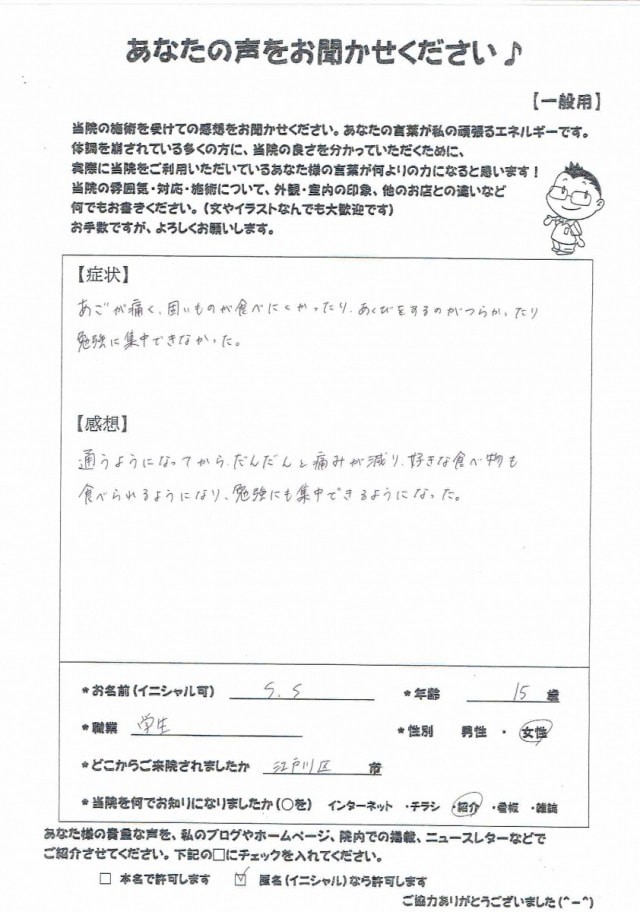 あなたの声をお聞かせください♪
【一般用】
当院の施術を受けての感想をお聞かせください。あなたの言葉が私の頑張るエネルギーです。
体調を崩されている多くの方に、当院の良さを分かっていただくために、
実際に当院をご利用いただいているあなた様の言葉が何よりの力になると思います！
当院の雰囲気・対応・施術について、外観・室内の印象、他のお店との違いなど
何でもお書きください。（文やイラストなんでも大歓迎です）
お手数ですが、よろしくお願いします。
【症状】
あごが痛く、固いものが食べにくかったり、あくびをするのがつらかったり
勉強に集中できなかった。
【感想】
通うようになってから、だんだんと痛みが減り、好きな食べ物も
食べられるようになり、勉強にも集中できるようになった。
*お名前（イニシャル可） S.S *年齢 15 歳
*職業 学生 *性別 男性 ・ 女性
*どこからご来院されましたか 江戸川区 市
*当院を何でお知りになりましたか（○を） インターネット ・チラシ ・紹介 ・看板 ・雑誌
あなた様の貴重な声を、私のブログやホームページ、院内での掲載、ニュースレターなどで
ご紹介させてください。下記の□にチェックを入れてください。
□ 本名で許可します ☑ 匿名（イニシャル）なら許可します
ご協力ありがとうございました（^－^）